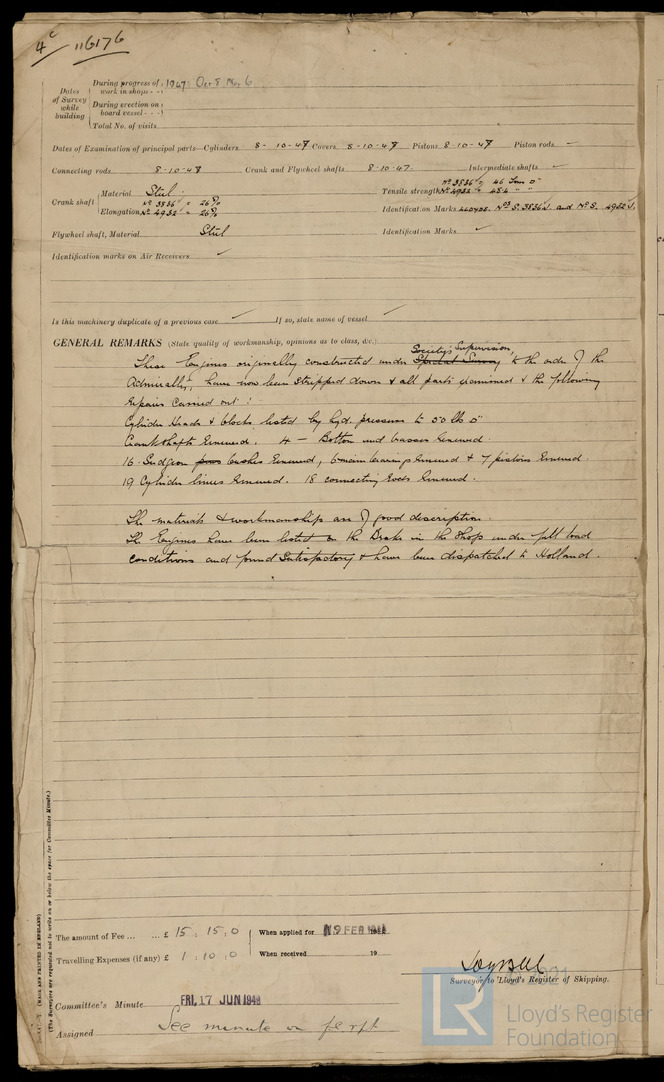 4c 116176
During progress of work in shops - - 1947 Oct 8 Nov 6
Dates of Survey while building
During erection on board vessel - - -
Total No. of visits
Dates of Examination of principal parts—Cylinders 8-10-47 Covers 8-10-47 Pistons 8-10-47 Piston rods —
Connecting rods 8-10-47 Crank and Flywheel shafts 8-10-47. Intermediate shafts
Crank shaft Material Steel Tensile strength No 3836 = 46 Tons □" No 4932 = 45.4 " "
Elongation No 3836 = 26% No 4932 = 26% Identification Marks LLOYDS. Nos S. 3836 J. and No S. 4932 J.
Flywheel shaft, Material Steel Identification Marks
Identification marks on Air Receivers
Is this machinery duplicate of a previous case If so, state name of vessel
GENERAL REMARKS (State quality of workmanship, opinions as to class, &c.)
Society's Supervision,
These Engines originally constructed under Special Survey to the order of the
Admiralty, have now been stripped down & all parts examined & the following
repairs carried out :
Cylinder Heads & blocks tested by hyd. pressure to 50 lb □"
Crankshafts Renewed. 4 - Bottom end brasses Renewed.
16 Gudgeon pins bushes Renewed, 6 main bearings Renewed & 7 pistons Renewed.
19 Cylinder liners Renewed. 18 connecting rods Renewed.
The materials & workmanship are of good description.
The Engines have been tested on the Brake in the Shop under full load
conditions and found Satisfactory & have been dispatched to Holland.
(MADE AND PRINTED IN ENGLAND)
(The Surveyors are requested not to write on or below the space for Committee Minute.)
The amount of Fee ... ... £ 15 : 15 : 0 When applied for 9 FEB
Travelling Expenses (if any) £ 1 : 10 : 0 When received 19
Surveyor to Lloyd's Register of Shipping.
Committee's Minute FRI. 17 JUN 1949
Assigned See minute on fe rpt
LR Lloyd's Register
Foundation